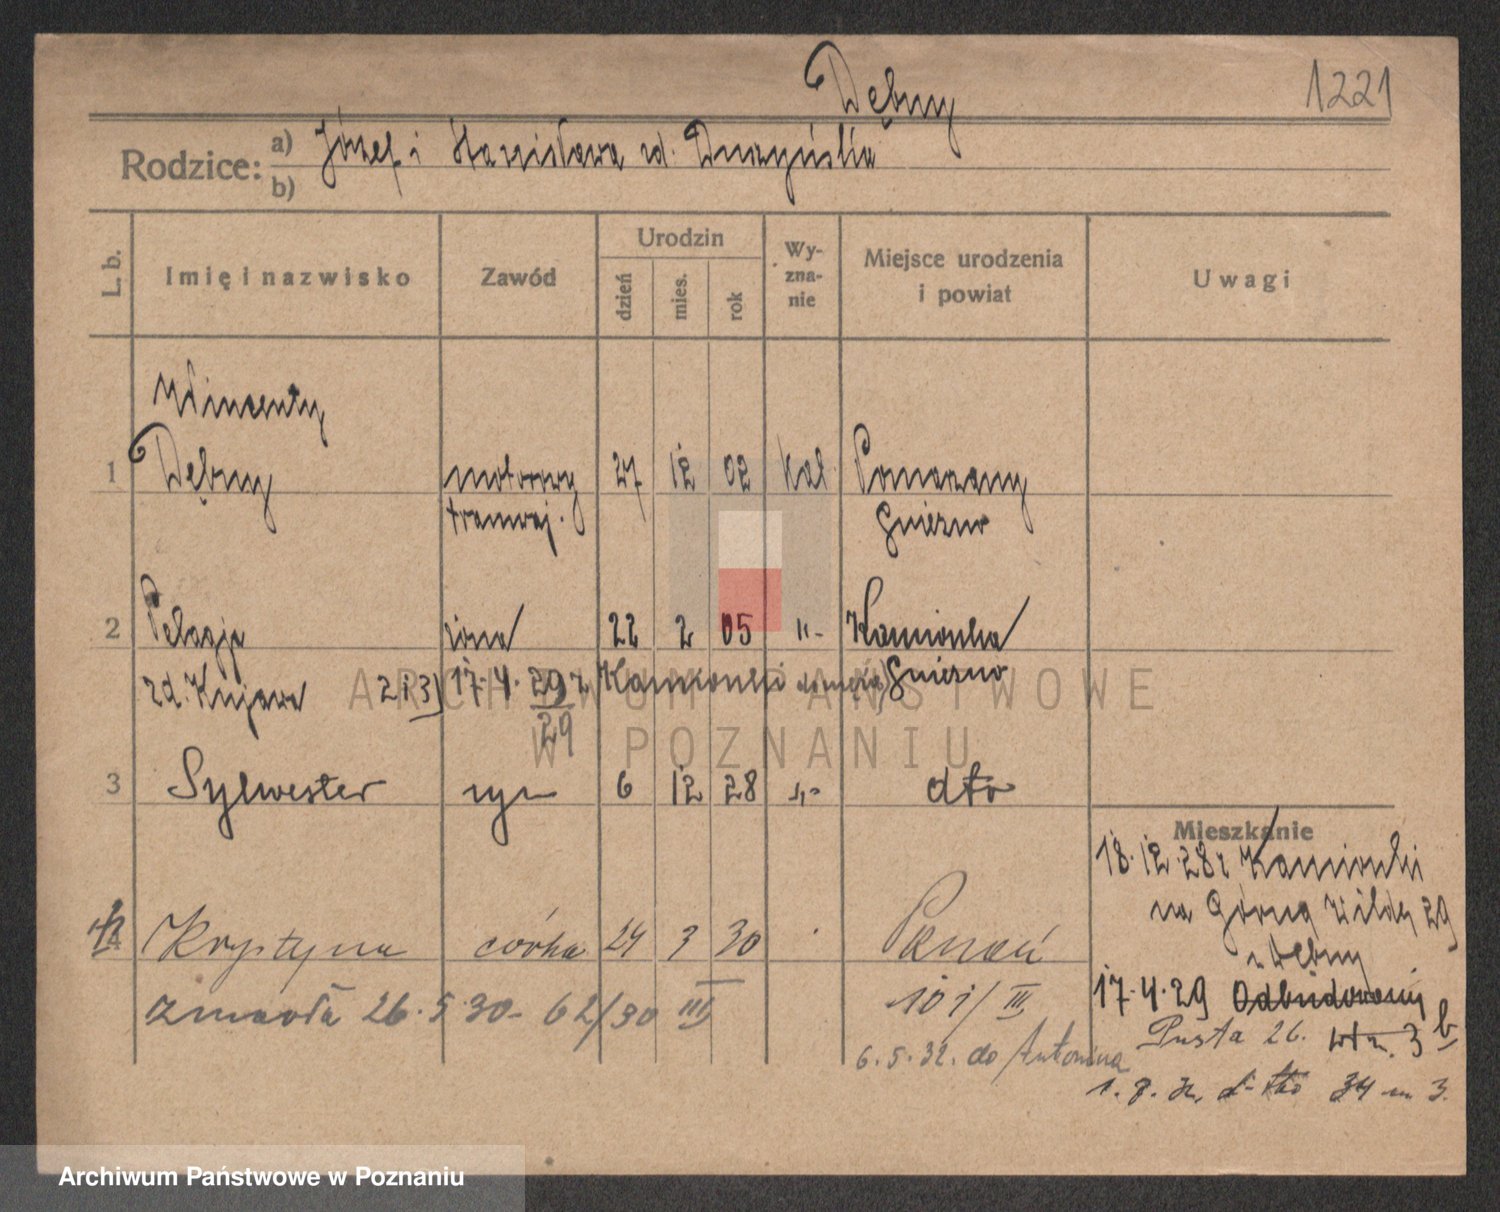 Dębny
1221
Rodzice:
a) Józef i Stanisława zd. Duszyńska
b)
L. b.
Imię i nazwisko
Zawód
Urodzin
dzień
mies.
rok
Wy-
zna-
nie
Miejsce urodzenia
i powiat
Uwagi
Wincenty
1 Dębny motorowy 27 12 02 kat Pomarzany
tramwaj. Gniezno
2 Pelagja żona 22 2 05 "- Kamionka
zd. Kujawa 2 i 3) 17.4.29 z Kamionki Gniezno
29
3 Sylwester syn 6 12 28 "- dto
Mieszkanie
18.12.28 z Kamionki
na Górną Wildę 29
z Dębny
4 Krystyna córka 24 3 30 Poznań
17.4.29
zmarła 26.5.30 - 62/30 III
101/III
Pusta 26. m. 3 b
6.5.32. do Antonina
34 m 3.
ARCHIWUM PAŃSTWOWE
W POZNANIU
Archiwum Państwowe w Poznaniu